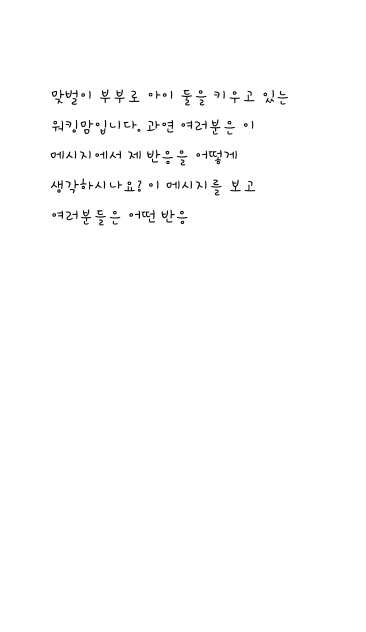 맞벌이 부부로 아이 둘을 키우고 있는
워킹맘입니다. 과연 여러분은 이
메시지에서 제 반응을 어떻게
생각하시나요? 이 메시지를 보고
여러분들은 어떤 반응